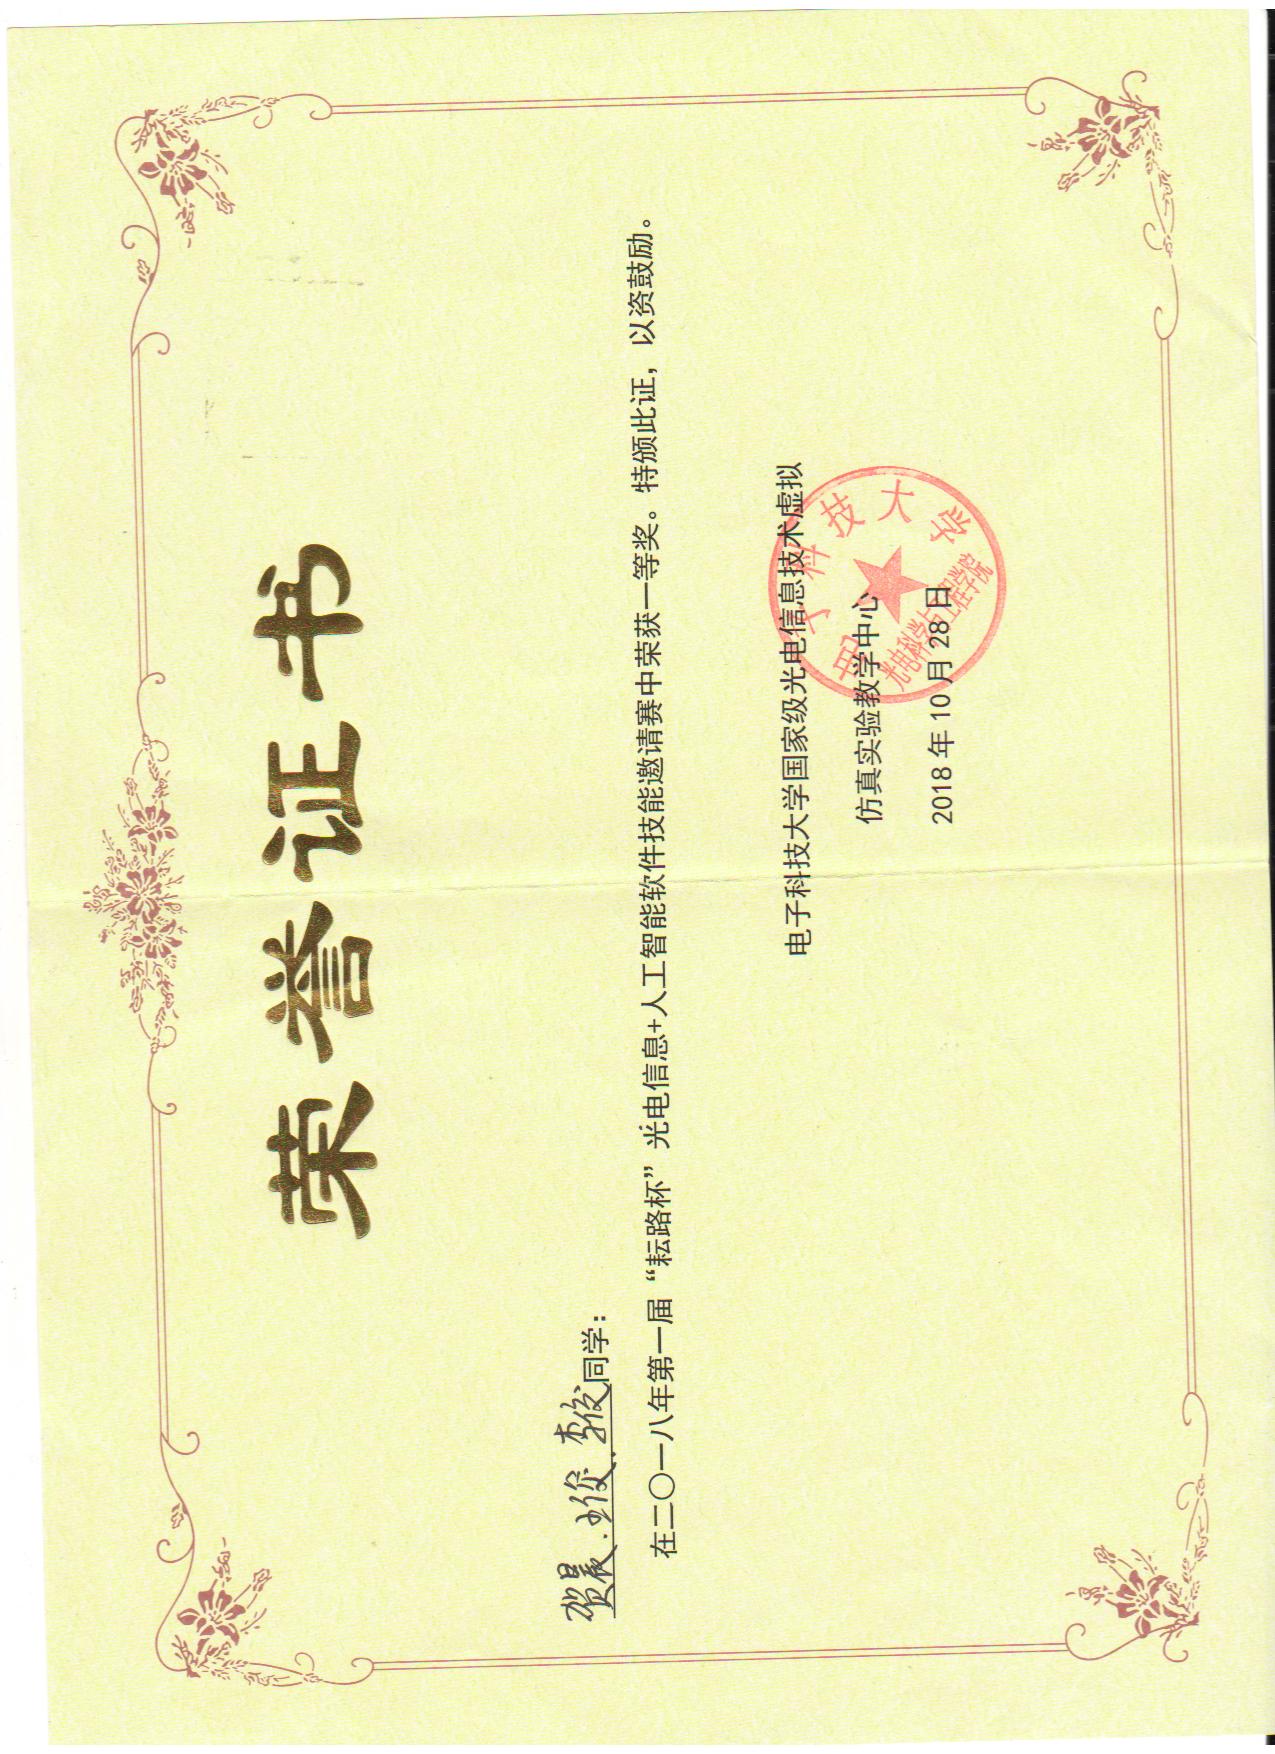 荣誉证书
贺晨、王俊、李俊同学：
在二〇一八年第一届“耘路杯”光电信息+人工智能软件技能邀请赛中荣获一等奖。特颁此证，以资鼓励。
电子科技大学国家级光电信息技术虚拟
仿真实验教学中心
2018年10月28日
电子科技大学
光电科学与工程学院